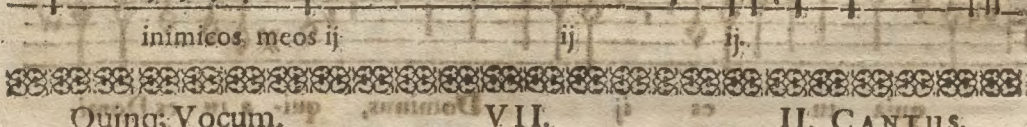 inimicos meos ij ij ij.
Quinq; Vocum. VII. II. CANTUS.